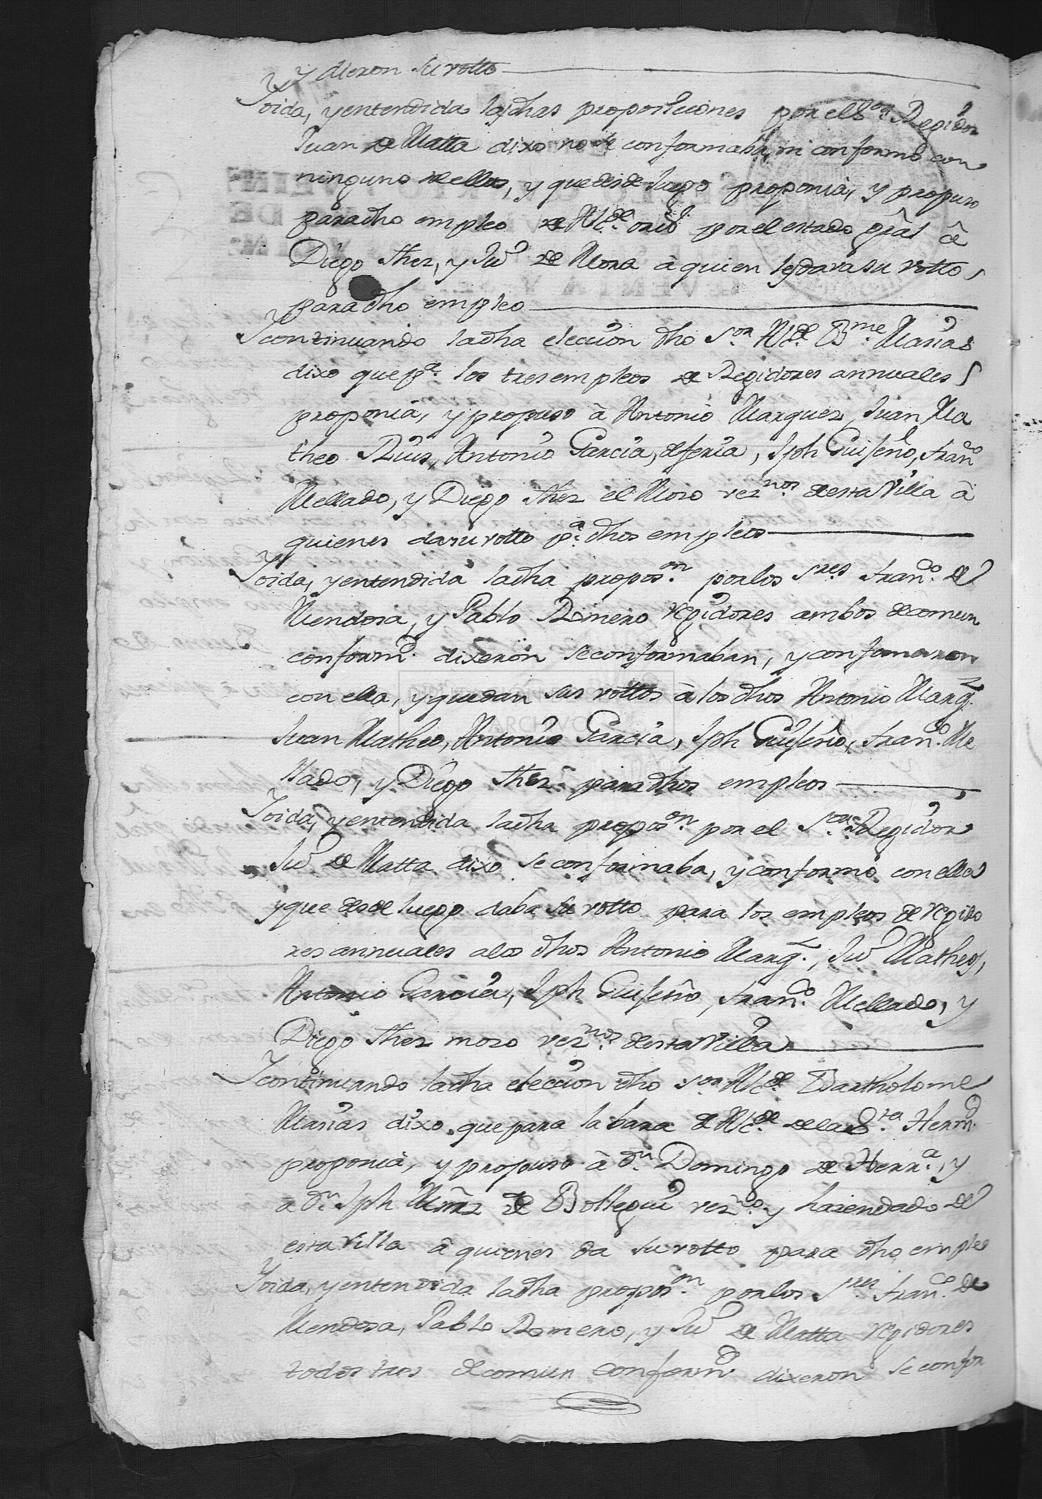 y dieron su votto
Yoida, y entendida las dhas proposiciones por el Sor Regidor
Juan de Matta dixo no se conformaba, ni conformo con
ninguno de ellos, y que desde luego proponia, y propuso
para dho empleo de Alde ordio por el estado gral â
Diego Shez, y Juo de Mora â quien les dara su votto,
para dho empleo
Y continuando la dha eleccion dho Sor Alde Bme Masias
dixo que pa los tres empleos de Regidores annuales
proponia, y propuso â Antonio Marquez Juan Ma
theo Ruis, Antonio Garcia, de feria, Jph Guiseño, Frano
Mellado, y Diego Shez el Moro veznos de esta Villa â
quienes da su votto pa dhos empleos
Yoida, y entendida la dha proposon por los Sres Frano de
Mendosa, y Pablo Romero regidores ambos de comun
conformd dixeron se conformaban, y conformaron
con ella, y quedan sus vottos â los dhos Antonio Marqz
Juan Matheo, Antonio Garcia, Jph Guiseño, Frano Me
llado, y Diego Shez para dhos empleos
Yoida, y entendida la dha proposon por el Sor Regidor
Juo de Matta dixo se conformaba, y conformo con ella
y que desde luego daba su votto para los empleos de regido
res annuales a los dhos Antonio Marqz, Juo Matheo,
Antonio Garcia, Jph Guiseño, Frano Mellado, y
Diego Shez moro veznos de esta Villa
Y continuando la dha eleccion dho Sor Alde Bartholome
Masias dixo que para la bara de Alde de la Sta Hermd
proponia, y propuso â Dn Domingo de Herra, y
a Dn Jph de Bottegui vezno y hazendado de
esta villa â quienes da su votto para dho empleo
Yoida, y entendida la dha proposon por los Sres Frano de
Mendosa, Pablo Romero, y Juo de Matta regidores
todos tres de comun conformd dixeron se confor